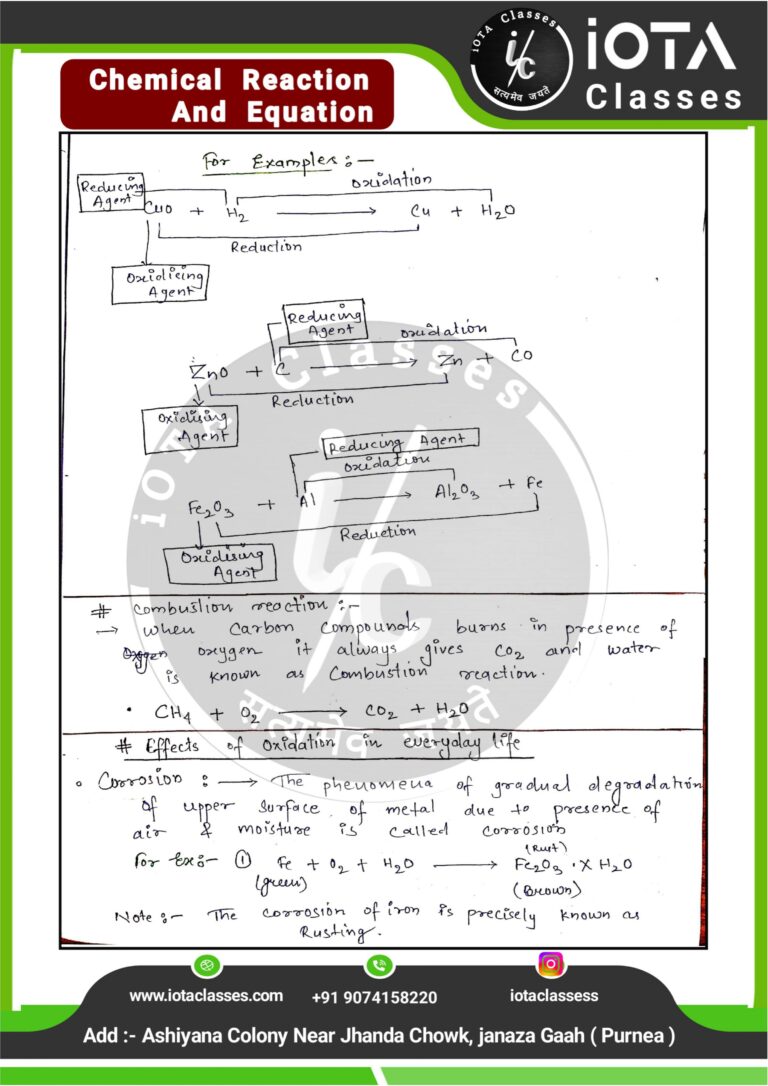 iOTA Classes
i/C
सत्यमेव जयते
iOTA
Classes
Chemical Reaction
And Equation
For Examples :-
Reducing
Agent
Oxidation
CuO + H2 → Cu + H2O
Reduction
Oxidicing
Agent
Reducing
Agent
oxidation
ZnO + C → Zn + CO
Reduction
Oxidising
Agent
Reducing Agent
Oxidation
Fe2O3 + Al → Al2O3 + Fe
Reduction
Oxidising
Agent
iOTA Classes
i/C
सत्यमेव जयते
# Combustion reaction :-
→ When Carbon Compounds burns in presence of
oxygen it always gives CO2 and water
is known as Combustion reaction.
• CH4 + O2 → CO2 + H2O
# Effects of Oxidation in everyday life
• Corrosion : → The phenomena of gradual degradation
of upper surface of metal due to presence of
air & moisture is called corrosion
(Rust)
For Ex:- ① Fe + O2 + H2O → Fe2O3 · X H2O
(green) (Brown)
Note :- The corrosion of iron is precisely known as
Rusting.
www.iotaclasses.com +91 9074158220 iotaclassess
Add :- Ashiyana Colony Near Jhanda Chowk, janaza Gaah ( Purnea )